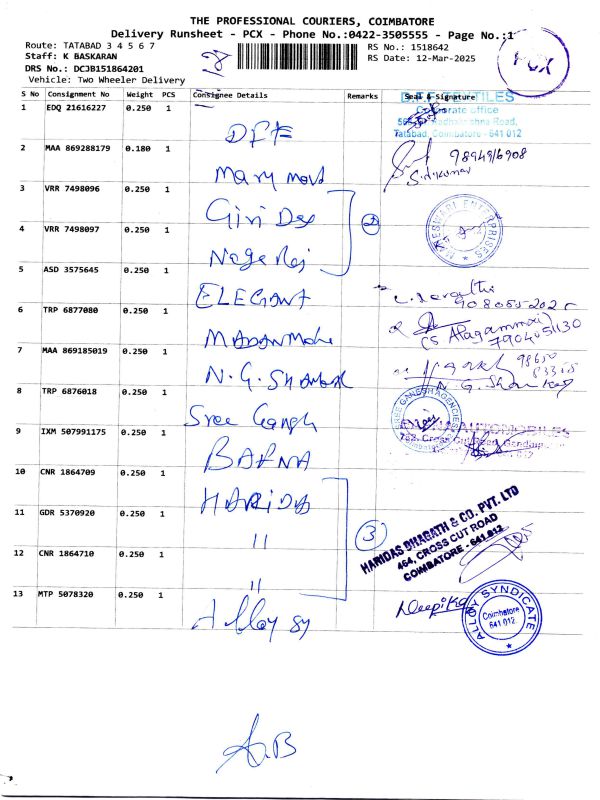 THE PROFESSIONAL COURIERS, COIMBATORE
Delivery Runsheet - PCX - Phone No.:0422-3505555 - Page No.:1
Route: TATABAD 3 4 5 6 7
Staff: K BASKARAN
DRS No.: DCJB151864201
Vehicle: Two Wheeler Delivery
28
RS No.: 1518642
RS Date: 12-Mar-2025
PCX
S No Consignment No Weight PCS Consignee Details Remarks Seal & Signature
1 EDQ 21616227 0.250 1 DFF
D.F.F. TEXTILES
Corporate office
Tatabad, Coimbatore - 641 012
2 MAA 869288179 0.180 1 Mary mart
9894916908
S. Sivakumar
3 VRR 7498096 0.250 1 Giri Dex
2
MAHESWARI ENTERPRISES
4 VRR 7498097 0.250 1 Nagaraj
5 ASD 3575645 0.250 1 ELEGANT
6 TRP 6877080 0.250 1
(S Alagammai)
7904051130
7 MAA 869185019 0.250 1 N.G. Shankar
N.G. Shankar
8 TRP 6876018 0.250 1 Sree Ganesh
SREE GANESH AGENCIES
9 IXM 507991175 0.250 1 BAFNA
BAFNA AUTOMOBILES
10 CNR 1864709 0.250 1 HARIDAS
11 GDR 5370920 0.250 1 "
3
HARIDAS BHARATH & CO. PVT. LTD
464, CROSS CUT ROAD
COIMBATORE - 641 012
12 CNR 1864710 0.250 1 "
13 MTP 5078320 0.250 1 Alloy sy
Deepika
ALLOY SYNDICATE
Coimbatore
641 012